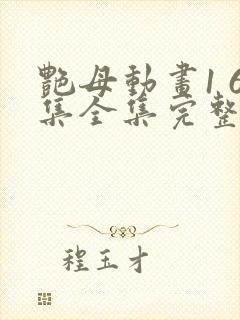 艷母動畫16
集全集完整
程玉才